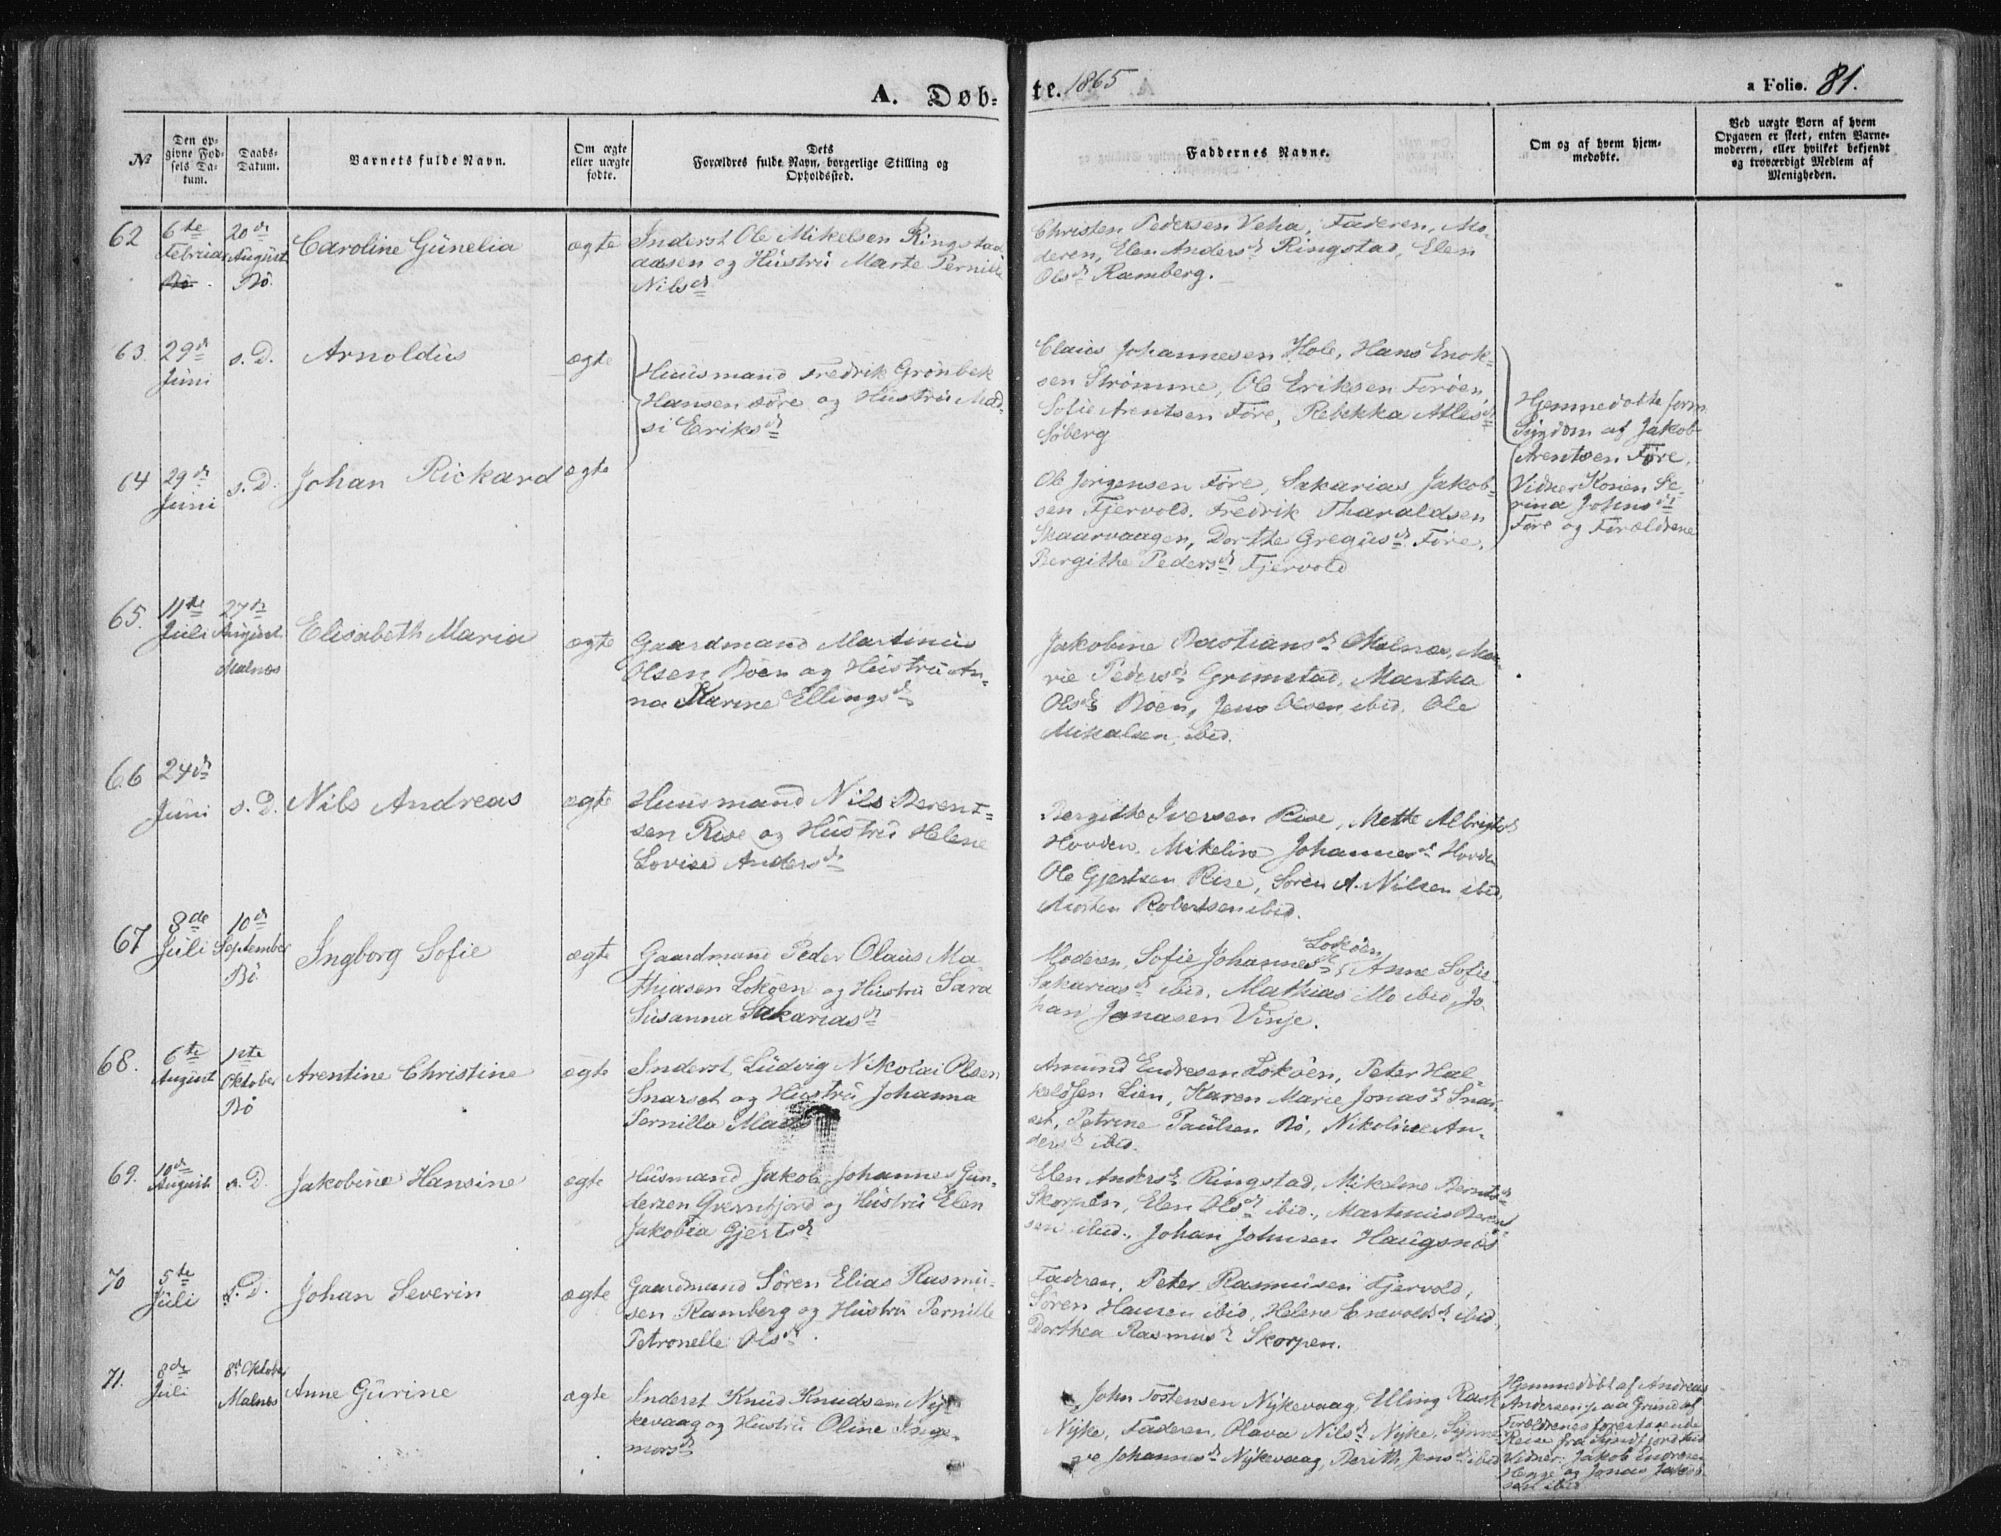 A. Døb-
te. 1865
a Folio. 81.
No
Den op-
givne Fød-
sels Da-
tum.
Daabs-
Datum.
Barnets fulde Navn.
Om ægte
eller uægte
fødte.
Dets
Forældres fulde Navn, borgerlige Stilling og
Opholdssted.
Faddernes Navne.
Om og af hvem hjem-
medøbte.
Ved uægte Børn af hvem
Opgaven er skeet, enten Barne-
moderen, eller hvilket bekjendt
og troværdigt Medlem af
Menigheden.
62
6te
Februar
Bø
20de
August
Bø
Caroline Günelia
ægte
Inderst Ole Mikelsen Ringstad
aasen og Hüstrü Marte Pernille
Nilsd
Christen Pedersen Veha, Faderen, Mo-
deren, Elen Andersd Ringstad, Elen
Olsd Ramberg.
63.
29d
Jüni
s. D.
Arnoldüs
ægte
Hüüsmand Fredrik Grönbek
Hansen Føre og Hüstrü Mad-
si Eriksd
Claüs Johannesen Hole, Hans Enok-
sen Strömme, Ole Eriksen Forøen,
Sofie Arentsen Føre, Rebekka Atlesd
Søberg
Hjemmedøbte form.
Sygdom af Jakob
Arentsen Føre.
Vidner Konen Se-
rina Johnsd
Føre og Forældrene
64
29d
Jüni
s. D.
Johan Rickard
ægte
Ole Jørgensen Føre, Sakarias Jakob-
sen Fjervold, Fredrik Tharaldsen
Skaarvaagen, Dorthe Gregüsd Føre,
Bergithe Pedersd Fjervold
65.
11te
Jüli
27de
August
Malnes
Elisabeth Maria
ægte
Gaardmand Martinüs
Olsen Böen og Hüstrü An-
na Karine Ellingsd
Jakobine Bastiansd Malnes, Ma-
rie Pedersd Grimstad, Martha
Olsd Böen, Jens Olsen ibid, Ole
Mikalsen ibid.
66
24d
Jüni
s. D.
Nils Andreas
ægte
Hüüsmand Nils Berent-
sen Rise og Hüstrü Helene
Lovise Andersd
Bergithe Iversen Rise, Mette Albrigtsd
Hovden, Mikeline Johannesd Hovden
Ole Gjertsen Rise, Sören A. Nilsen ibid,
Morten Robertsen ibid.
67
8de
Jüli
10d
September
Bö
Ingborg Sofie
ægte
Gaardmand Peder Olaüs Ma
thiasen Loköen og Hüstrü Sara
Süsanna Sakariasd
Moderen, Sofie Johannesd Loköen, Anne Sofie
Sakariasd ibid, Mathias Mo ibid, Jo-
han Jonasen Vinje.
68.
6te
August
1ste
Oktober
Bö
Arentine Christine
ægte
Inderst Lüdvig Nikolai Olsen
Snarset og Hüstrü Johanna
Pernilla
Amünd Endresen Loköen, Peter Hal-
keldsen Lien, Karen Marie Jonasd Snar
set, Petrine Paülsen Bö, Nikoline An-
dersd ibid.
69.
10d
August
s. D.
Jakobine Hansine
ægte
Hüsmand Jakob Johannes Gün-
dersen og Hüstrü Elen
Jakobia Gjertsd
Elen Andersd Ringstad, Mikeline Berntsd
Skorpen, Elen Olsd ibid., Martinüs Bernt
sen ibid., Johan Johnsen Haügsnes
70
5te
Jüli
s. D.
Johan Severin
ægte
Gaardmand Sören Elias Rasmü-
sen Ramberg og Hüstrü Pernille
Petronelle Olsd.
Faderen, Peter Rasmüsen Fjervold,
Sören Hansen ibid, Helene Enevoldsd ibid,
Dorthea Rasmüsd Skorpen.
71.
8de
Jüli
8d Oktober
Malnes
Anne Gürine
ægte
Inderst Knüd Knudsen Ny-
kevaag og Hüstrü Oline Inge-
morsd
John Tostensen Nykevaag, Elling Rask
Nyke, Faderen, Olava Nilsd Nyke, Synne
ve Johannesd Nykevaag, Berith Jensd ibid
Hjemmedøbt af Andreas
Andersen paa Grund af
Forældrenes forestaaende
Reise fra
Vidner: Jakob Endresen
og Jonas Jakob-
sen ibid